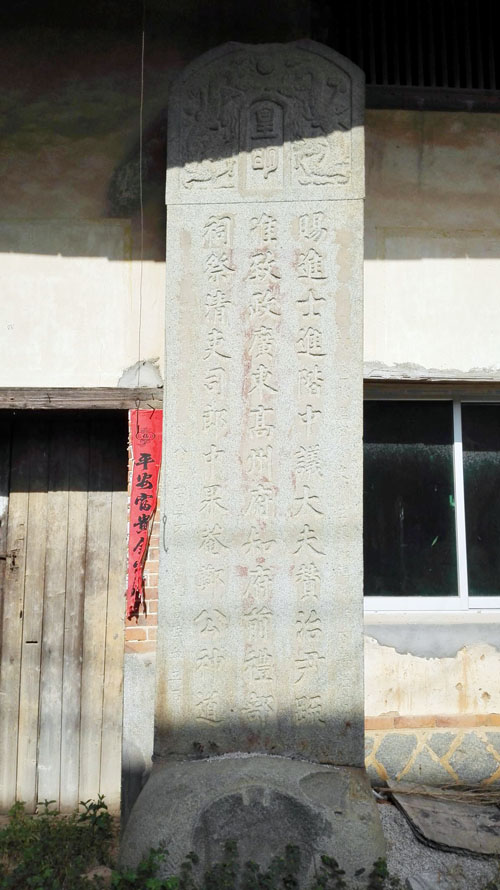 皇明
賜進士進階中議大夫贊治尹疏
准致政廣東高州府知府前禮部
祠祭清吏司郎中果菴鄭公神道
平安富貴